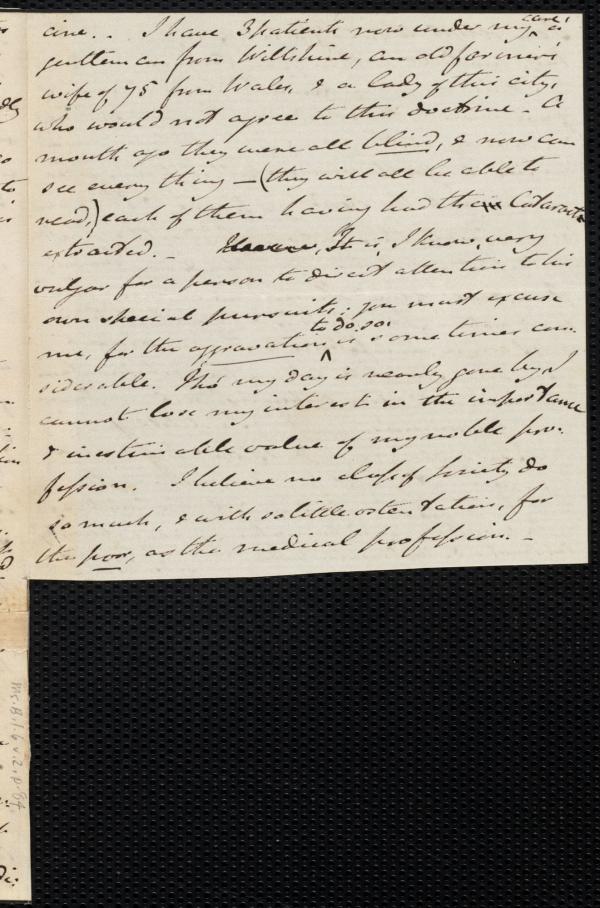 cine.. I have 3 patients now under my care: a
gentleman from Wiltshire, an old farmer's
wife of 75 from Wales, & a lady of this city,
who would not agree to this doctrine. A
month ago they were all blind, & now can
see every thing — (they will all be able to
read,) each of them having had their Cataracts
extracted. - It is, I know, very
vulgar for a person to direct attention to his
own special pursuits; you must excuse
me, for the aggravation to do so. is sometimes con-
siderable. Tho' my day is nearly gone by, I
cannot lose my interest in the importance
& inestimable value of my noble pro-
fession. I believe no class of Society do
so much, & with so little ostentation, for
the poor, as the medical profession. -
Ms.B.1.6 v.2, p.84